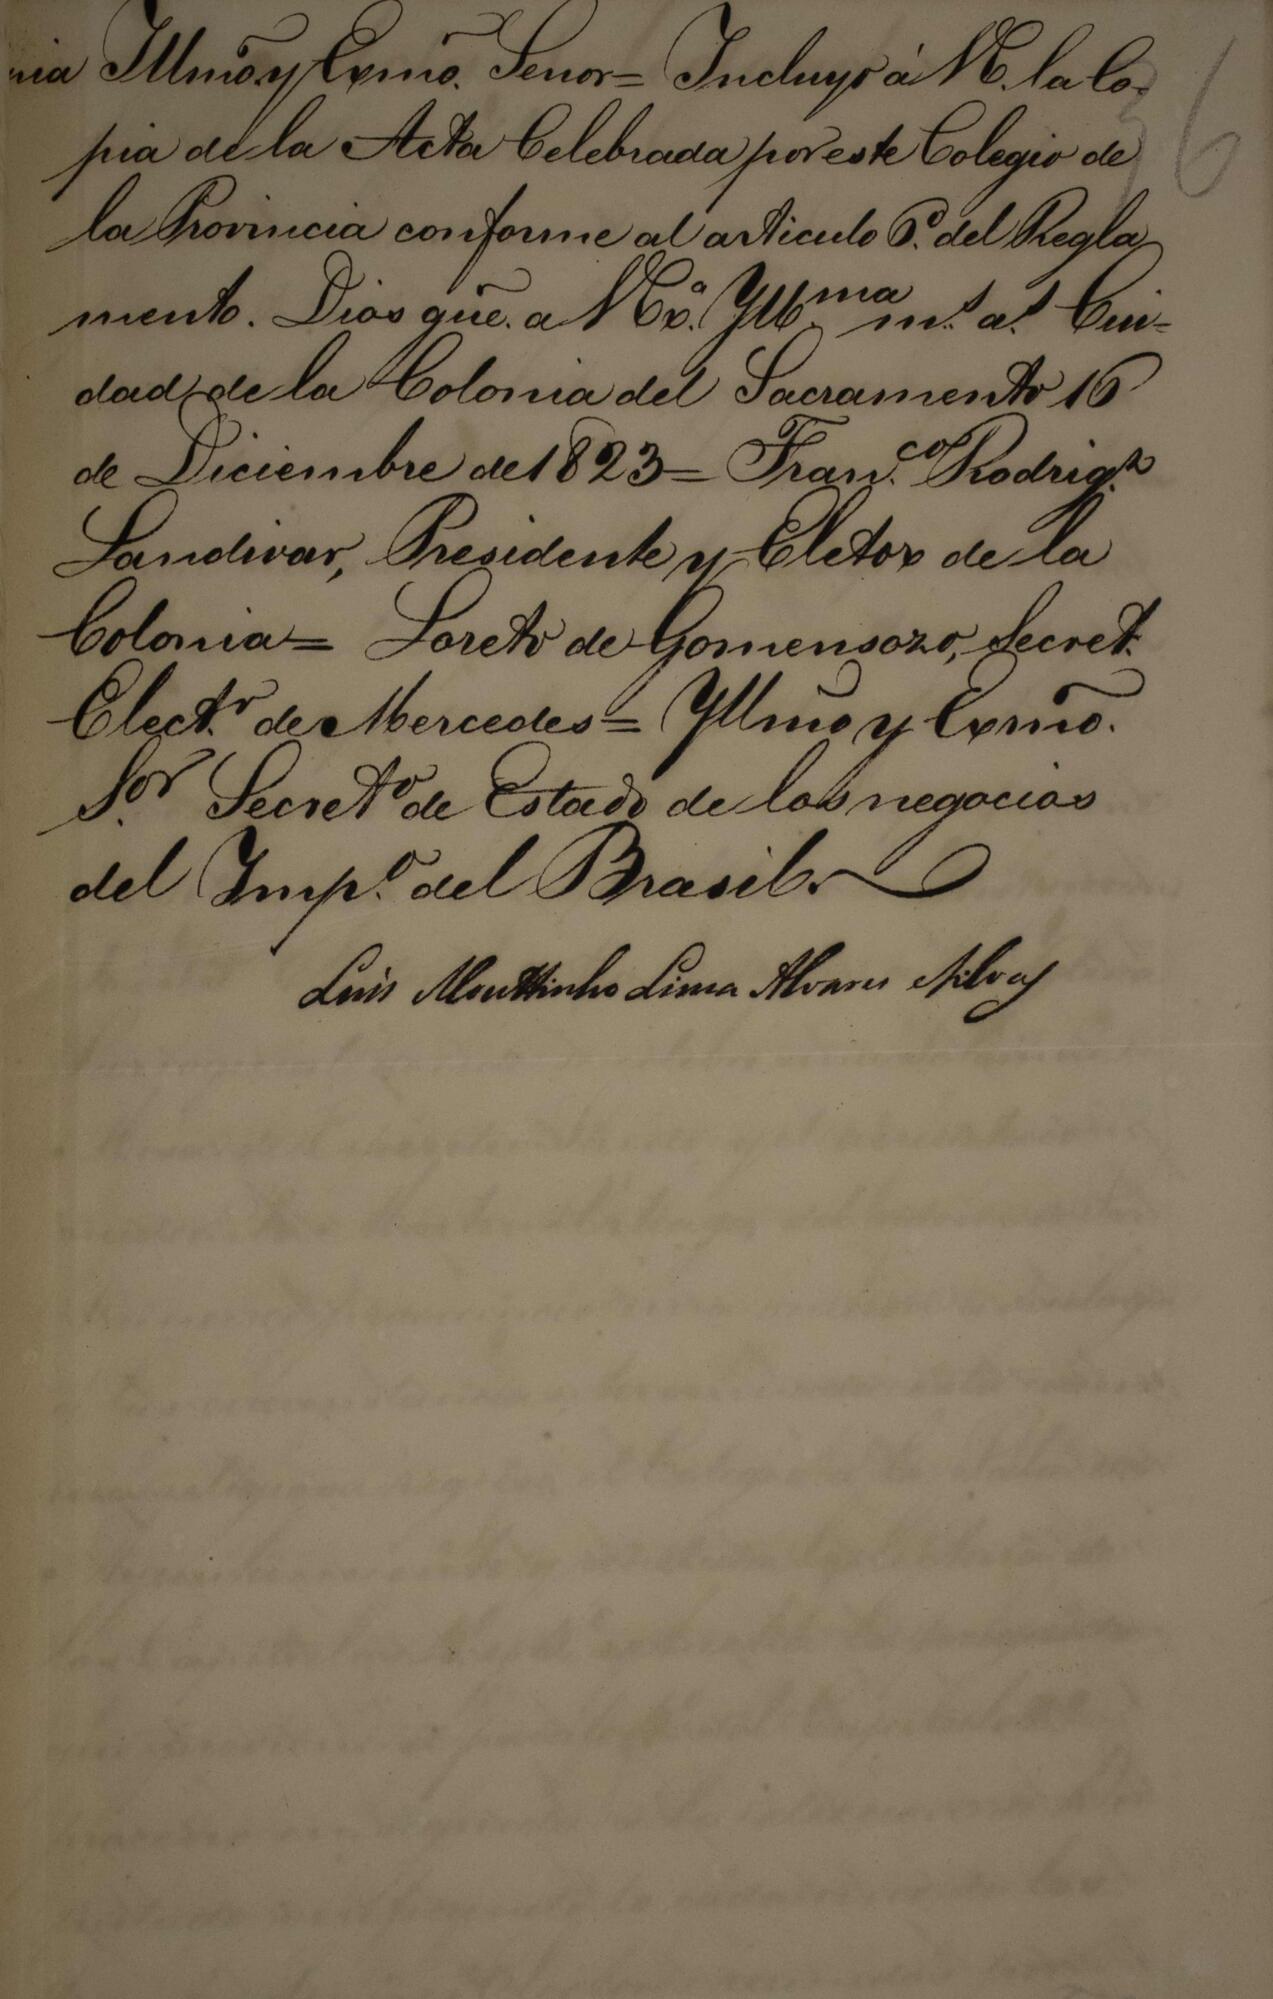 nia Illmo. y Exmõ. Senor= Incluyo á V. la Co-
pia de la Acta Celebrada por este Colegio de
la Provincia conforme al articulo 6º. del Regla
mento. Dios güe. a V Exª. Yllma. ms. as. Ciu-
dad de la Colonia del Sacramento 16
de Diciembre de 1823= Franco. Rodrigz.
Landivar, Presidente y Eletor de la
Colonia= Loreto de Gomensoro, Secret.
Elector. de Mercedes= Yllmõ y Exmõ.
Sor. Secreto. de Estado de los negocios
del Impº. del Brasil.
Luis Moutinho Lima Alvares Silva
36